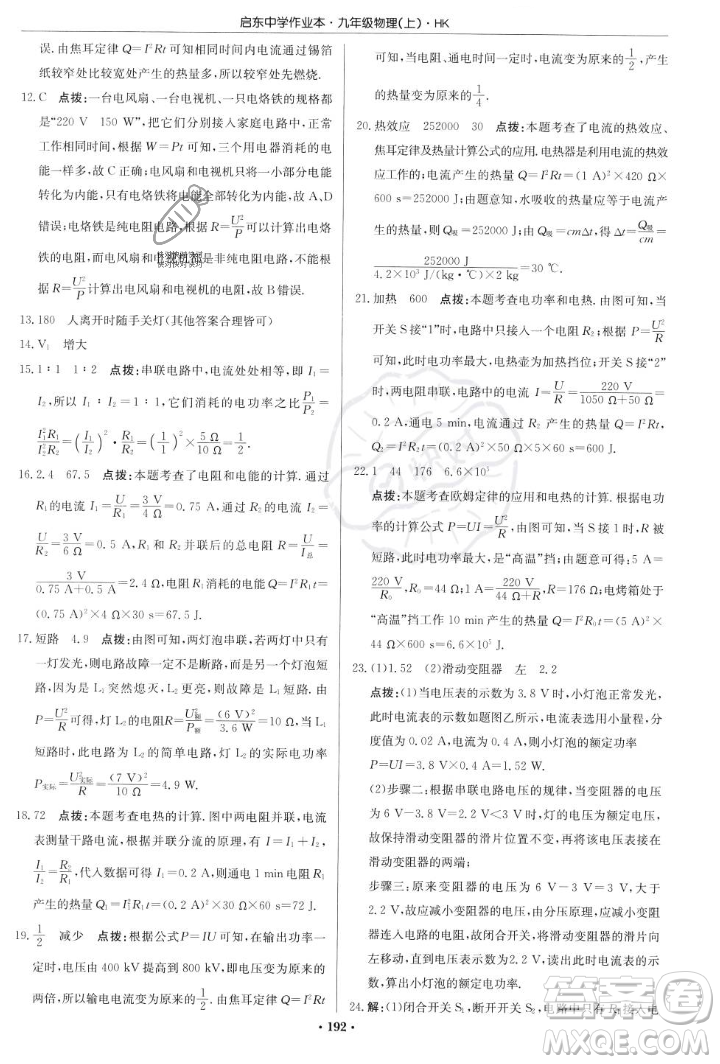 启东中学作业本·九年级物理(上)·HK
述. 由焦耳定律 Q=I²Rt 可知, 相同时间内电流通过锡箔
纸较窄处比较宽处产生的热量多, 所以较窄处先燃烧.
12. C 点拨: 一台电风扇、一台电视机、一只电烙铁的规格都
是“220 V 150 W”, 把它们分别接入家庭电路中, 都正常
工作相同时间, 根据 W=Pt 可知, 三个用电器消耗的电
能一样多, 故 C 正确; 电风扇和电视机只有小部分电能
转化为内能, 只有电烙铁将电能全部转化为内能, 故 A、D
错误; 电烙铁是纯电阻电路, 根据 R=U²/P 可以计算出电烙
铁的电阻, 而电风扇和电视机都是非纯电阻电路, 不可根
据 R=U²/P 计算出电风扇和电视机的电阻, 故 B 错误.
13. 180 人离开时随手关灯(其他答案合理皆可)
14. V₁ 增大
15. 1∶1 1∶2 点拨: 串联电路中, 电流处处相等, 即 I₁=
I₂, 所以 I₁/I₂=1/1, 根据 P=I²R, 它们消耗的电功率之比 P₁/P₂=
I₁²R₁/I₂²R₂=(I₁/I₂)²·R₁/R₂=(1/1)²×5 Ω/10 Ω=1/2.
16. 2.4 67.5 点拨: 本题考查了电阻和电能的计算. 通过
R₁ 的电流 I₁=U/R₁=3 V/4 Ω=0.75 A, 通过 R₂ 的电流 I₂=
U/R₂=3 V/6 Ω=0.5 A, R₁ 和 R₂ 并联后的总电阻 R=U/I总=
3 V/(0.75 A+0.5 A)=2.4 Ω, 电阻 R₁ 消耗的电能 Q=I²R₁t=
(0.75 A)²×4 Ω×30 s=67.5 J.
17. 短路 4.9 点拨: 由图可知, 两灯泡串联, 有其中一只
灯发光, 则电路故障一定不是断路, 而是某一只灯泡短
路. 因为 L₂ 突然变亮, 则 L₁ 一定发生了短路. 由
P=U²/R 可得, 灯 L₂ 的电阻 R=U额²/P额=(6 V)²/3.6 W=10 Ω, 当 L₁
短路后, 电路为 L₂ 的简单电路, 灯 L₂ 的实际电功率
P实际=U实际²/R=(7 V)²/10 Ω=4.9 W.
18. 72 点拨: 本题考查电热的计算. 图中两电阻并联, 电流
表测量干路电流, 根据并联分流的原理, 有 I=I₁+I₂,
I₁/I₂=R₂/R₁, 代入数据可得 I₁=0.2 A, 则通电 1 min 电流通
过电阻 R₁ 产生的热量 Q=I₁²R₁t=(0.2 A)²×30 Ω×60
s=72 J.
19. 1/2 减少 点拨: 根据公式 P=IU 可知, 在输出功率一
定时, 电压由 400 kV 提高至 800 kV, 即电压变为原来的
两倍, 所以输电电流变为原来的 1/2. 根据焦耳定律 Q=
I²Rt 可知, 在电阻、通电时间一定时, 电流变为原来的 1/2,
产生的热量变为原来的 1/4.
20. 热效应 252000 30 点拨: 本题考查了电流的热效应、
焦耳定律及热量计算公式的应用. 电热器是利用电流的热效
应工作的; 电流产生的热量 Q=I²Rt=(1 A)²×420 Ω×
600 s=252000 J; 由题意知, 水吸收的热量等于电流产生
的热量, 即 Q吸=252000 J, 由 Q吸=cmΔt 可得, Δt=Q吸/cm=
252000 J/(4.2×10³ J/(kg·℃)×2 kg)=30 ℃.
21. 加热 600 点拨: 本题考查电功率和电热. 由图可知,
开关 S 接“1”时, 电路中只接入一个电阻 R₂, 由 P=U²/R可
知, 此时电功率最大, 电热壶为加热挡位; 开关 S 接“2”
时, 两电阻串联, 电路中的电流 I=U/R=220 V/(1050 Ω+50 Ω)=
0.2 A, 通电 5 min, 电流通过 R₂ 产生的热量 Q=I²R₂t=
(0.2 A)²×50 Ω×5×60 s=600 J.
22. 1 44 176 6.6×10⁵
点拨: 本题考查欧姆定律的应用和电热的计算. 根据电功
率的计算公式 P=UI=U²/R可知, 当 S 接 1 时, 只有 R₀ 接
入电路, 此时电功率最大, 是“高温”挡; 由题意可得: 5 A=
220 V/R₀, R₀=44 Ω, 1 A=220 V/(R₀+R), R=176 Ω; 电烤箱处于
“高温”挡工作 10 min 产生的热量 Q=I²R₀t=(5 A)²×
44 Ω×10×60 s=6.6×10⁵ J.
23. (1)1.52 (2)滑动变阻器 左 2.2
点拨: (1)当电压表的示数为 3.8 V 时, 小灯泡正常发光,
此时电流表的示数如图乙所示, 电流表选用小量程, 分度
值为 0.02 A, 示数为 0.4 A, 小灯泡的额定功率
P=UI=3.8 V×0.4 A=1.52 W.
(2)步骤二: 根据串联电路电压的规律, 变阻器的电压为
6 V-3.8 V=2.2 V<3 V, 灯的额定电压为 3.8 V>
3 V, 故保持滑动变阻器的滑片位置不变, 把电压表改接
在滑动变阻器的两端;
步骤三: 原来变阻器的电压为 6 V-3 V=3 V>
2.2 V, 故应减小变阻器的电压, 根据分压原理, 应减小变
阻器连入电路中的电阻, 闭合开关, 向左调节滑片, 使
电压表示数为 2.2 V 时, 再次读出电流表示数, 即可计
算出小灯泡的额定功率.
24. 解: (1)闭合开关 S₁, 断开开关 S₂, 电路中只有 R₂ 接入电
·192·